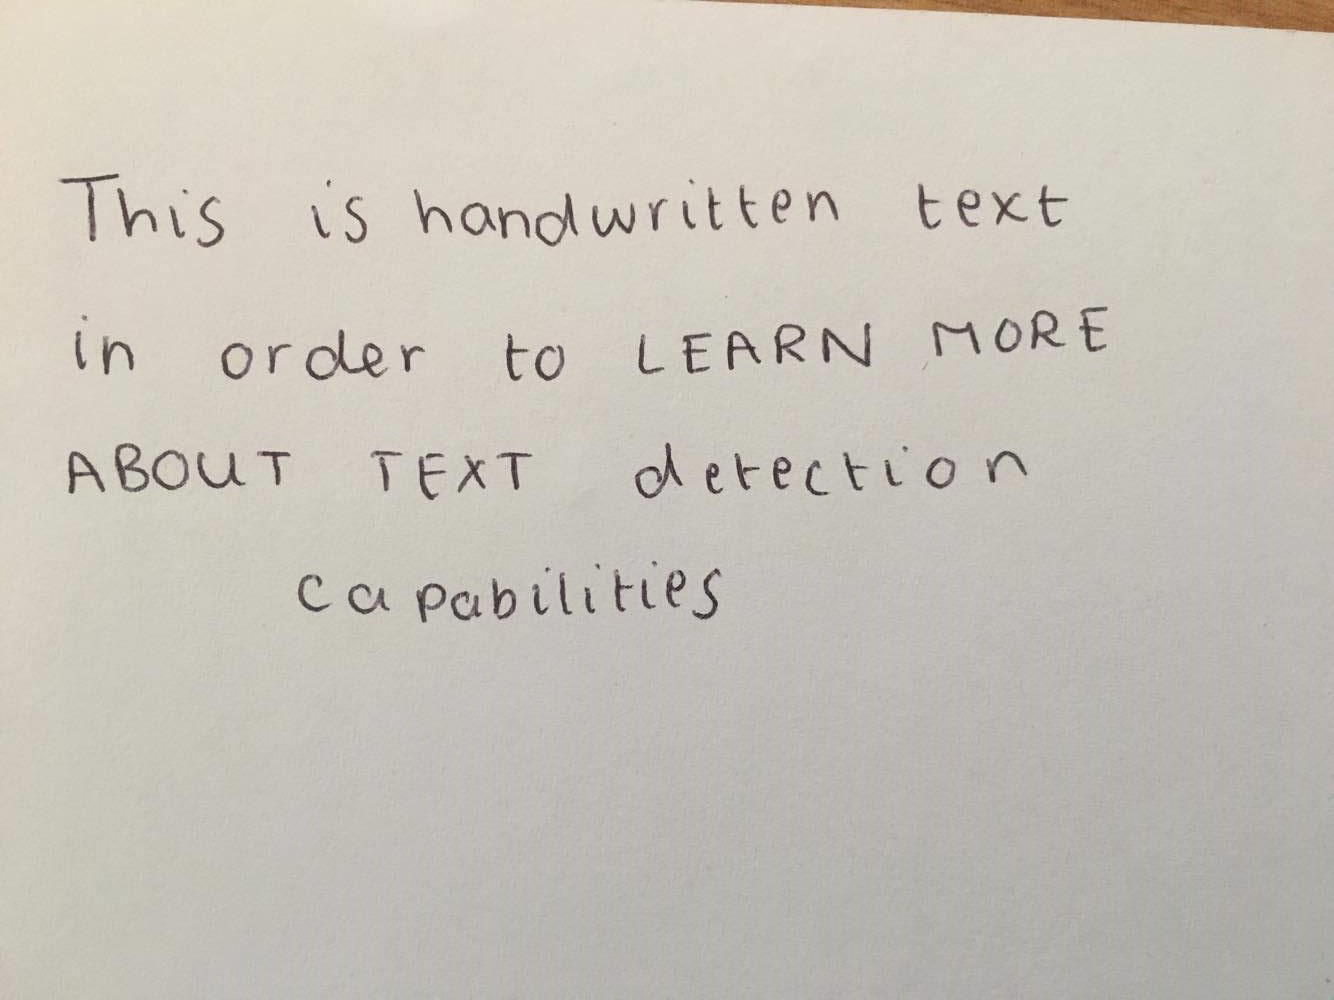 This is handwritten text
in order to LEARN MORE
ABOUT TEXT detection
capabilities